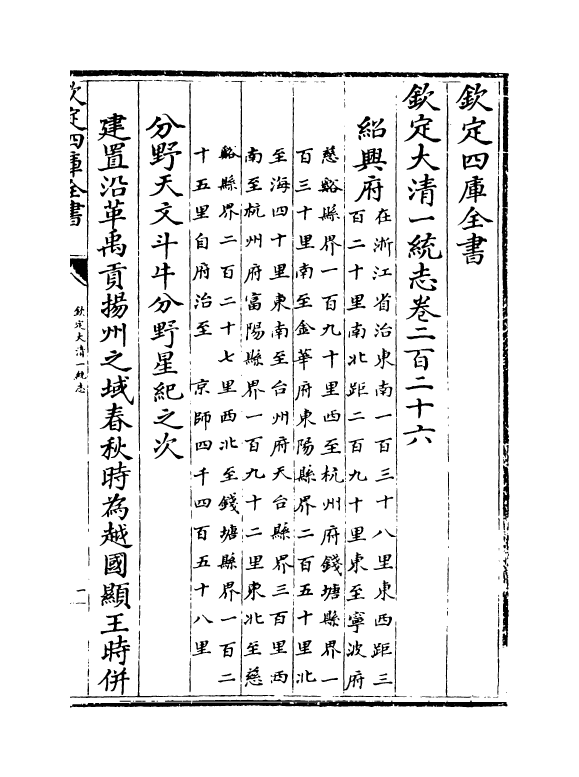 欽定四庫全書
欽定大清一統志卷二百二十六
紹興府
在浙江省治東南一百三十八里東西距三
百二十里南北距二百九十里東至寧波府
慈谿縣界一百九十里西至杭州府錢塘縣界一
百三十里南至金華府東陽縣界二百五十里北
至海四十里東南至台州府天台縣界三百里西
南至杭州府富陽縣界一百九十二里東北至慈
谿縣界二百二十七里西北至錢塘縣界一百二
十五里自府治至 京師四千四百五十八里
分野天文斗牛分野星紀之次
建置沿革禹貢揚州之域春秋時為越國顯王時併
欽定四庫全書
欽定大清一統志
一